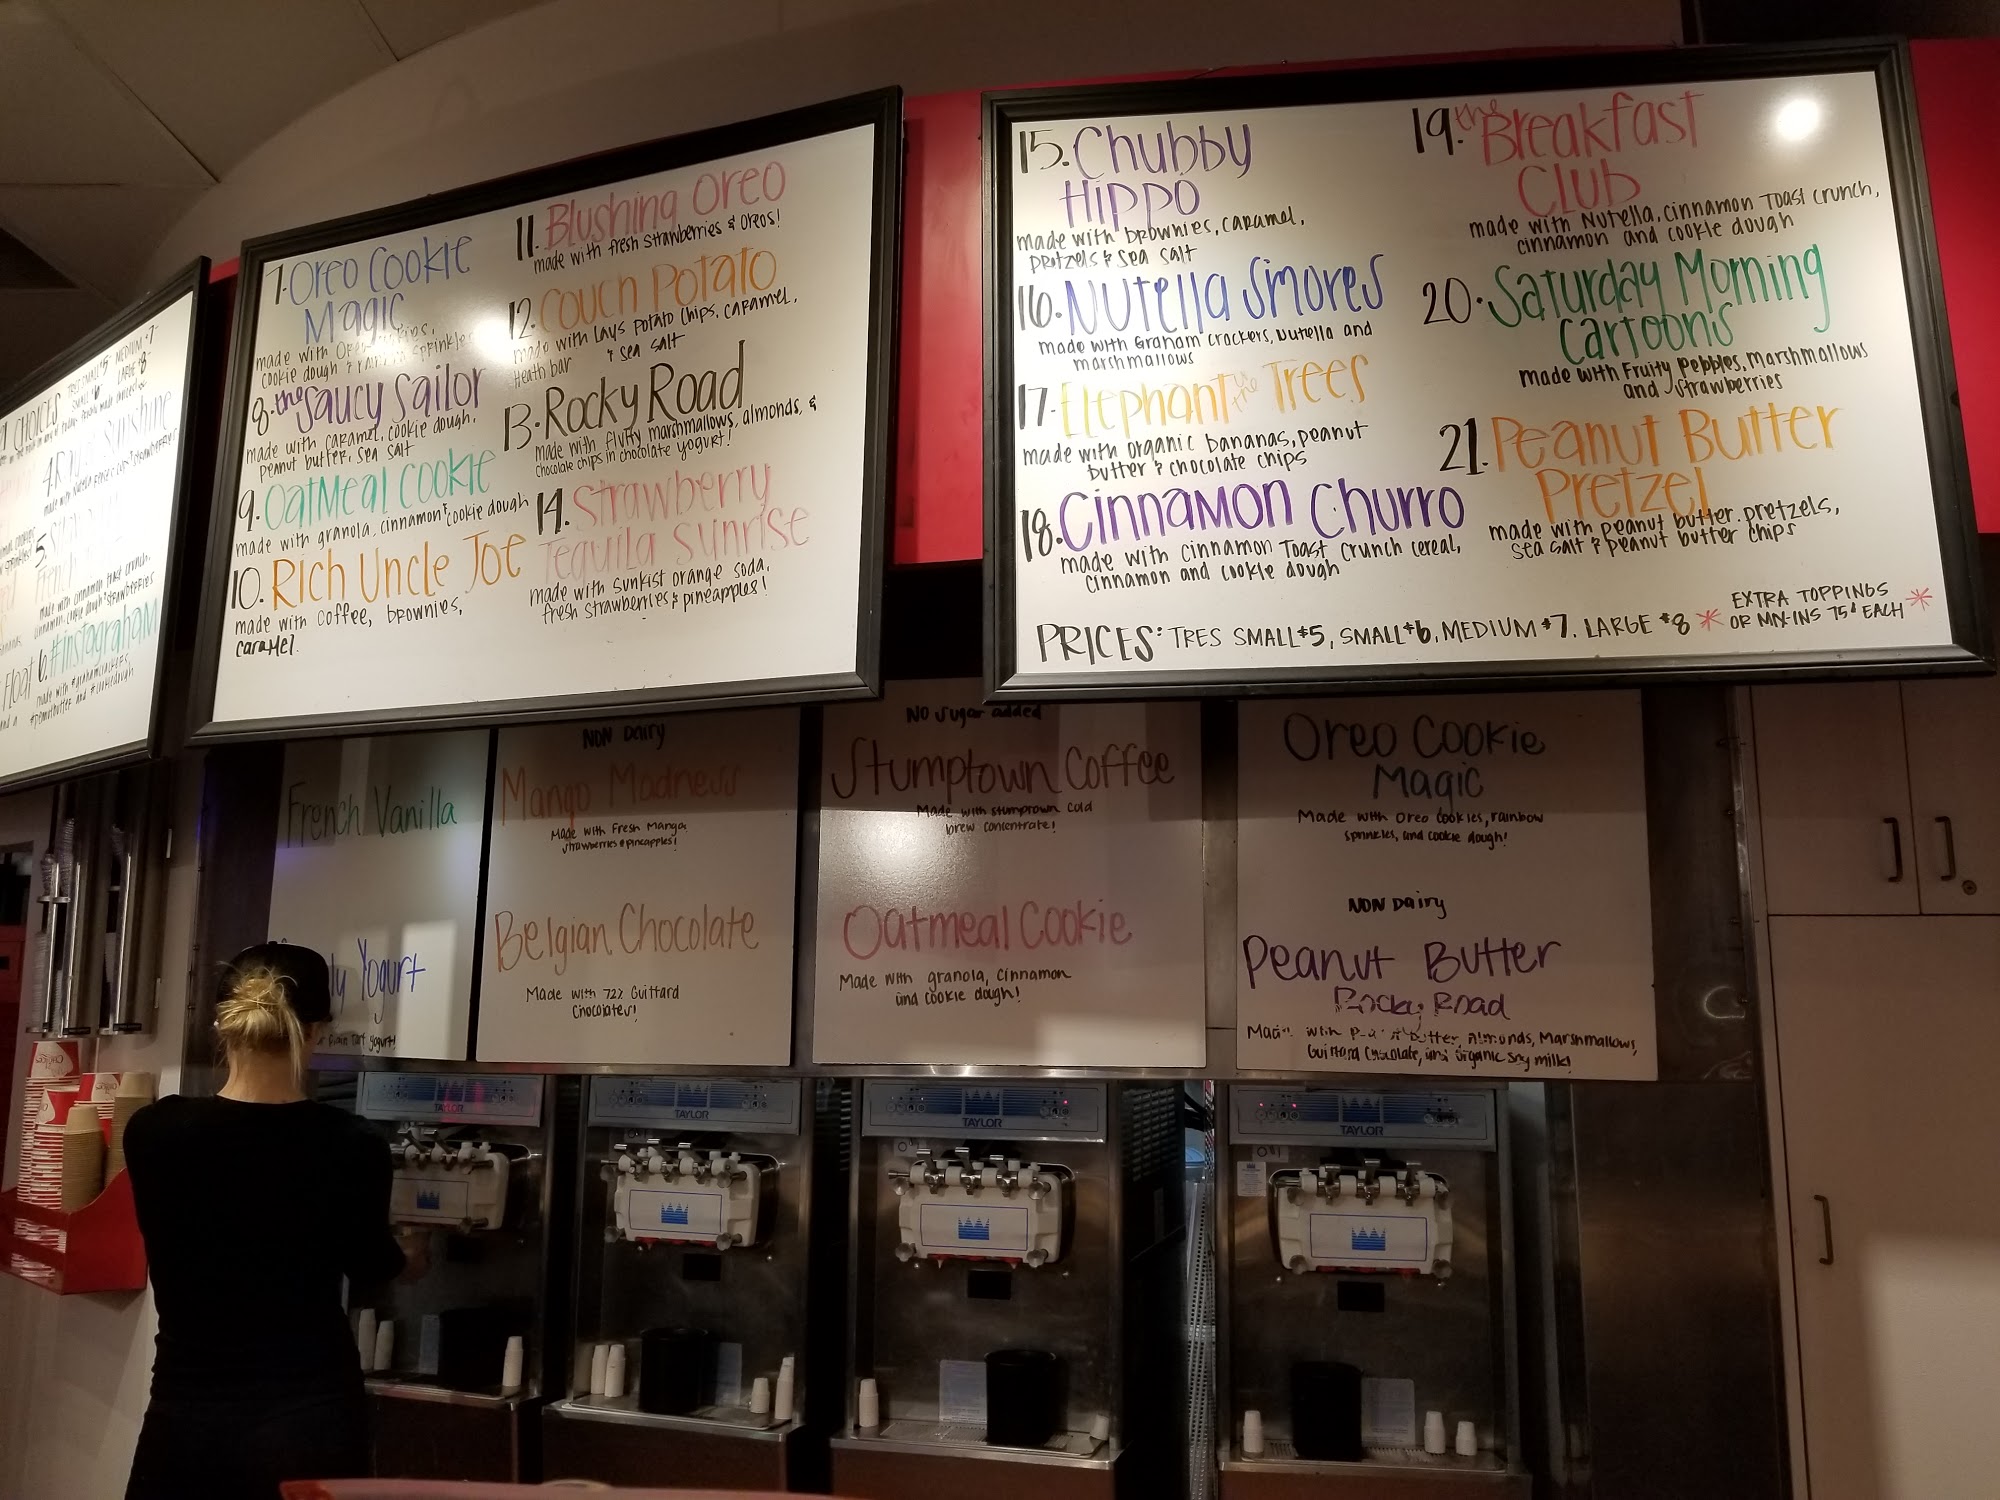 CHOICES
TRES SMALL $5 MEDIUM $7
LARGE $8
Sunshine
5.
French
made with cinnamon toast crunch,
Float
6. #instagraham
made with #grahamcrackers
#peanutbutter and #cookiedough
7. Oreo Cookie
Magic
made with
cookie dough & sprinkles
8. the Saucy Sailor
made with caramel, cookie dough,
peanut butter, sea salt
9. Oatmeal Cookie
made with granola, cinnamon & cookie dough
10. Rich Uncle Joe
made with coffee, brownies,
caramel.
11. Blushing Oreo
made with fresh strawberries & oreos!
12. Couch Potato
made with Lays Potato chips, caramel,
& sea salt
Heath bar
13. Rocky Road
made with fluffy marshmallows, almonds, &
chocolate chips in chocolate yogurt!
14. Strawberry
Tequila Sunrise
made with sunkist orange soda,
fresh strawberries & pineapples!
15. Chubby
Hippo
made with brownies, caramel,
pretzels & sea salt
16. Nutella Smores
made with Graham crackers, nutella and
marshmallows
17. Elephant in the Trees
made with organic bananas, peanut
butter & chocolate chips
18. Cinnamon Churro
made with cinnamon Toast crunch cereal,
cinnamon and cookie dough
19. the Breakfast
Club
made with Nutella, cinnamon Toast crunch,
cinnamon and cookie dough
20. Saturday Morning
Cartoons
made with Fruity Pebbles, marshmallows
and strawberries
21. Peanut Butter
Pretzel
made with peanut butter, pretzels,
sea salt & peanut butter chips
PRICES: TRES SMALL $5, SMALL $6, MEDIUM $7, LARGE $8
* EXTRA TOPPINGS *
OR MIX-INS 75¢ EACH
French Vanilla
Yogurt
plain tart yogurt!
NON Dairy
Mango Madness
Made with Fresh Mango,
strawberries & pineapples!
Belgian Chocolate
Made with 72% Guittard
Chocolates!
NO Sugar added
Stumptown Coffee
Made with stumptown cold
brew concentrate!
Oatmeal Cookie
Made with granola, cinnamon
and cookie dough!
Oreo Cookie
Magic
Made with oreo cookies, rainbow
sprinkles, and cookie dough!
NON Dairy
Peanut Butter
Rocky Road
Made with peanut butter, Almonds, Marshmallows,
Guittard Chocolate, and organic soy milk!
TAYLOR
TAYLOR
TAYLOR
TAYLOR